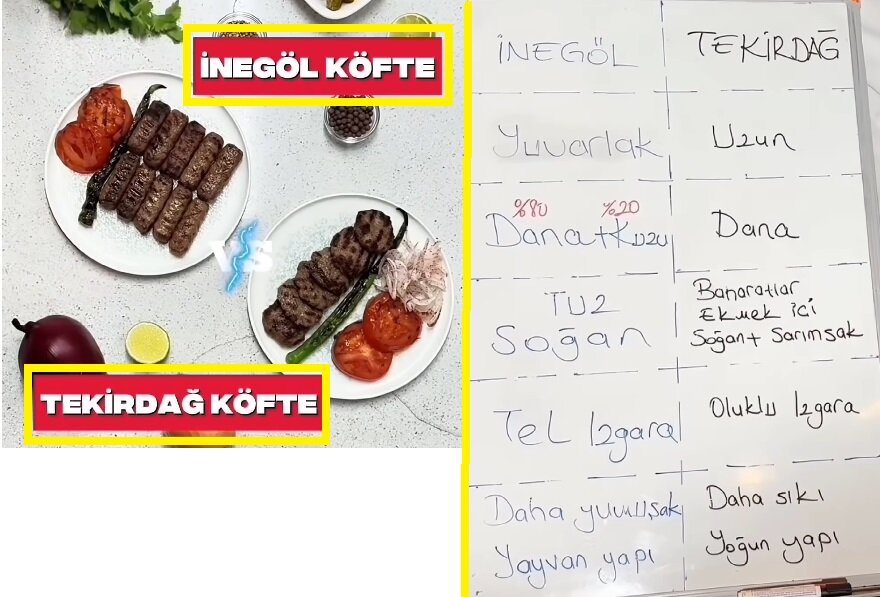 İNEGÖL KÖFTE
VS
TEKİRDAĞ KÖFTE
İNEGÖL
TEKİRDAĞ
Yuvarlak
Uzun
%80 %20
Dana+Kuzu
Dana
TUZ
Soğan
Baharatlar
Ekmek içi
Soğan+ Sarımsak
Tel Izgara
Oluklu Izgara
Daha yumuşak
Yayvan yapı
Daha sıkı
Yoğun yapı